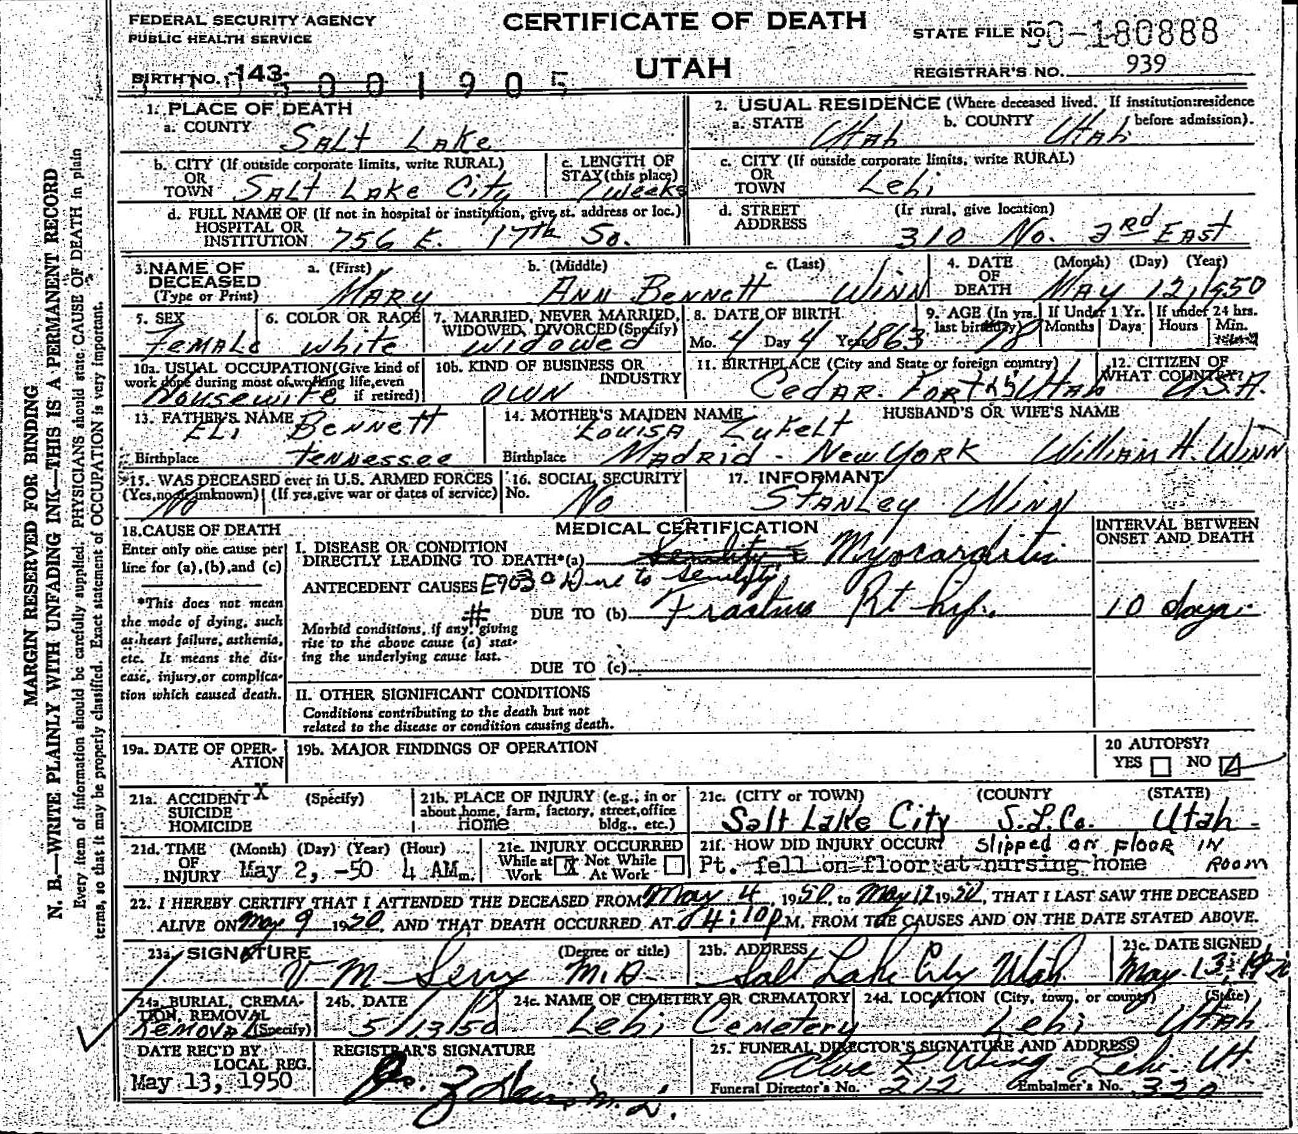 FEDERAL SECURITY AGENCY
PUBLIC HEALTH SERVICE
CERTIFICATE OF DEATH
UTAH
STATE FILE NO. 50-180888
REGISTRAR'S NO. 939
BIRTH NO. 143-
001905
1. PLACE OF DEATH
a. COUNTY Salt Lake
b. CITY (If outside corporate limits, write RURAL) OR TOWN Salt Lake City
c. LENGTH OF STAY (this place) weeks
d. FULL NAME OF (If not in hospital or institution, give st. address or loc.) HOSPITAL OR INSTITUTION 756 E. 17th So.
2. USUAL RESIDENCE (Where deceased lived. If institution: residence before admission).
a. STATE Utah b. COUNTY Utah
c. CITY (If outside corporate limits, write RURAL) OR TOWN Lehi
d. STREET ADDRESS (If rural, give location) 310 No. 3rd East
3. NAME OF DECEASED (Type or Print)
a. (First) Mary b. (Middle) Ann Bennett c. (Last) Winn
4. DATE OF DEATH (Month) (Day) (Year) May 12, 1950
5. SEX Female
6. COLOR OR RACE White
7. MARRIED, NEVER MARRIED, WIDOWED, DIVORCED (Specify) Widowed
8. DATE OF BIRTH Mo. 4 Day 4 Year 1863
9. AGE (In yrs. last birthday) If Under 1 Yr. Months Days If under 24 hrs. Hours Min.
10a. USUAL OCCUPATION (Give kind of work done during most of working life, even if retired) Housewife
10b. KIND OF BUSINESS OR INDUSTRY OWN
11. BIRTHPLACE (City and State or foreign country) Cedar Fort, Utah
12. CITIZEN OF WHAT COUNTRY? U.S.A.
13. FATHER'S NAME Eli Bennett
Birthplace Tennessee
14. MOTHER'S MAIDEN NAME Louisa
Birthplace Madrid - New York
HUSBAND'S OR WIFE'S NAME
William H. Winn
15. WAS DECEASED ever in U.S. ARMED FORCES
(Yes, no or unknown) (If yes, give war or dates of service) No
16. SOCIAL SECURITY No. No
17. INFORMANT
Stanley Winn
18. CAUSE OF DEATH
Enter only one cause per line for (a), (b), and (c)
*This does not mean the mode of dying, such as heart failure, asthenia, etc. It means the disease, injury, or complication which caused death.
MEDICAL CERTIFICATION
INTERVAL BETWEEN ONSET AND DEATH
I. DISEASE OR CONDITION DIRECTLY LEADING TO DEATH*(a) Myocarditis
ANTECEDENT CAUSES E9030 Due to senility
DUE TO (b) Fracture Rt hip. 10 days
Morbid conditions, if any, giving rise to the above cause (a) stating the underlying cause last.
DUE TO (c)
II. OTHER SIGNIFICANT CONDITIONS
Conditions contributing to the death but not related to the disease or condition causing death.
19a. DATE OF OPERATION
19b. MAJOR FINDINGS OF OPERATION
20 AUTOPSY?
YES NO
21a. ACCIDENT X (Specify)
SUICIDE
HOMICIDE
21b. PLACE OF INJURY (e.g., in or about home, farm, factory, street, office bldg., etc.) Home
21c. (CITY or TOWN) (COUNTY (STATE)
Salt Lake City S.L.Co. Utah
21d. TIME OF INJURY (Month) (Day) (Year) (Hour) May 2, -50 4 AM m.
21e. INJURY OCCURRED
While at Work X Not While At Work
21f. HOW DID INJURY OCCUR? slipped on floor in room
Pt. fell on floor at nursing home
22. I HEREBY CERTIFY THAT I ATTENDED THE DECEASED FROM May 4, 1950, to May 12 1950, THAT I LAST SAW THE DECEASED
ALIVE ON May 9 1950, AND THAT DEATH OCCURRED AT 4:10 P.M. FROM THE CAUSES AND ON THE DATE STATED ABOVE.
23a. SIGNATURE (Degree or title) M.D.
23b. ADDRESS Salt Lake City Utah
23c. DATE SIGNED May 13, 1950
24a. BURIAL, CREMATION, REMOVAL (Specify) Removal
24b. DATE 5/13/50
24c. NAME OF CEMETERY OR CREMATORY Lehi Cemetery
24d. LOCATION (City, town, or county) (State) Lehi Utah
DATE REC'D BY LOCAL REG.
May 13, 1950
REGISTRAR'S SIGNATURE
25. FUNERAL DIRECTOR'S SIGNATURE AND ADDRESS
Lehi, Ut.
Funeral Director's No. 212 Embalmer's No. 320
MARGIN RESERVED FOR BINDING
N. B.—WRITE PLAINLY WITH UNFADING INK—THIS IS A PERMANENT RECORD
Every item of information should be carefully supplied; PHYSICIANS should state CAUSE OF DEATH in plain
terms, so that it may be properly classified. Exact statement of OCCUPATION is very important.